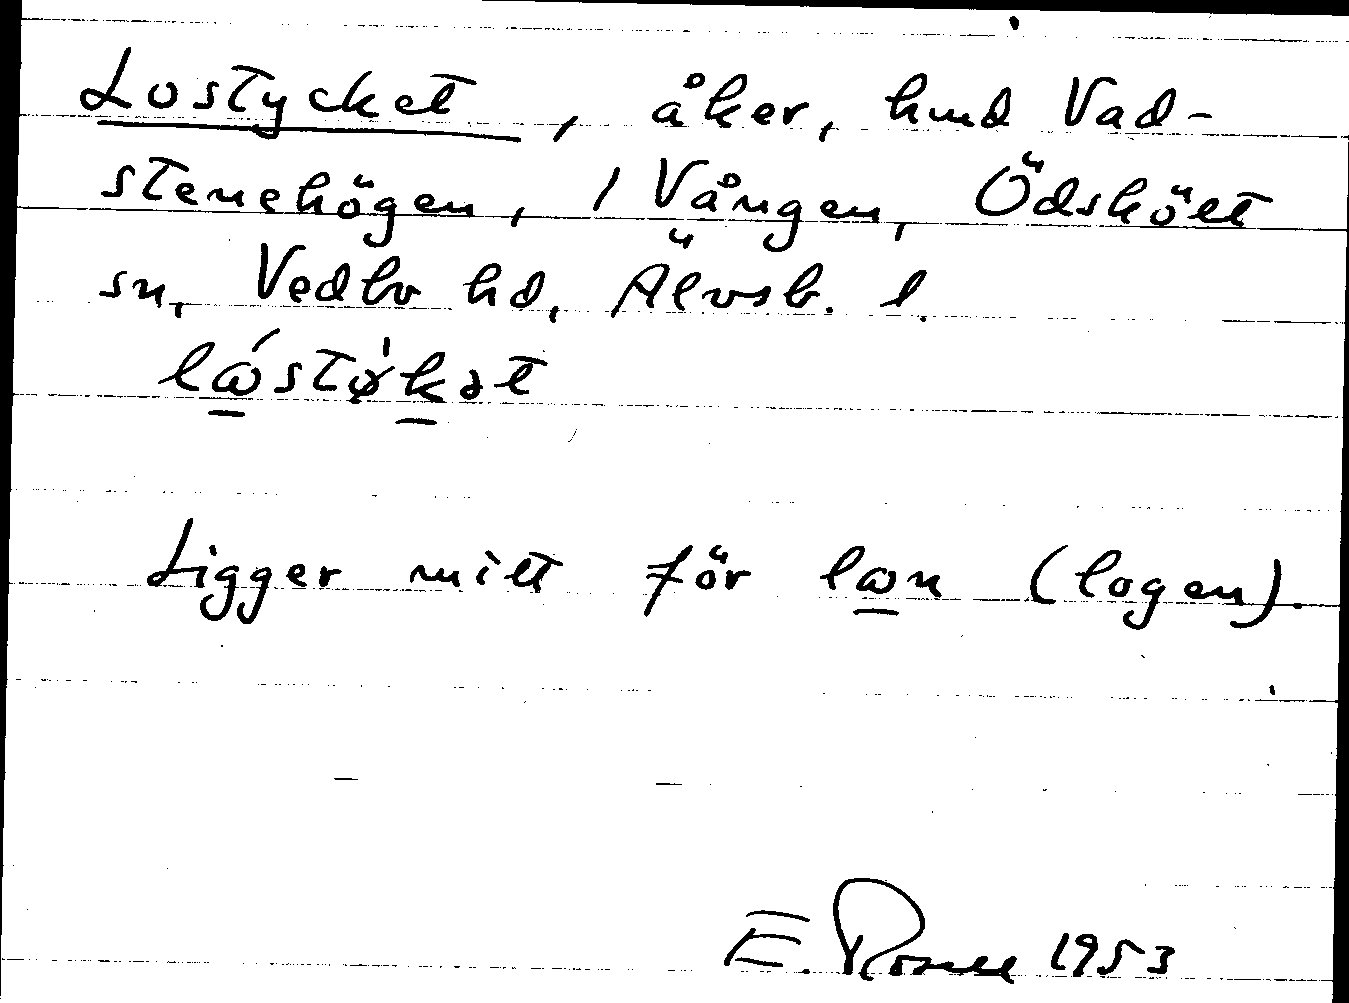 Lostycket, åker, hmd Vad-
stenehögen, 1 Vången, Ödskölt
sn, Vedbo hd, Älvsb. l.
lɷ́støkət
Ligger mitt för lɷn (logen).
E. 1953